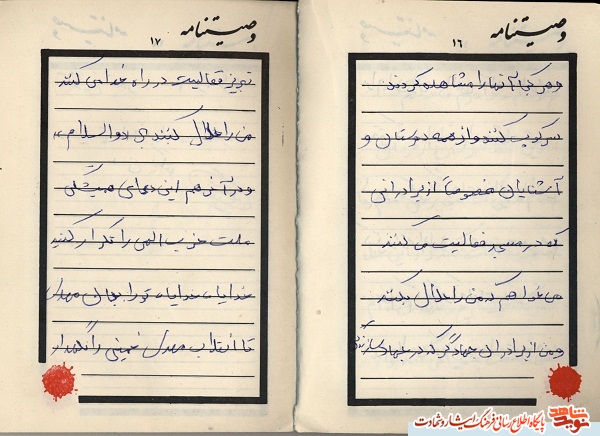 وصیتنامه
۱۶
و هر کجا آنها را مشاهده کردند
سرکوب کنند و از همه دوستان و
آشنایان خصوصاً از برادرانی
که در مسجد فعالیت می کنند
می خواهم که من را حلال بکنند
و من از برادران جهادگر که در جهاد سازندگی
وصیتنامه
۱۷
تبریز فعالیت در راه خدا می کنند
من را حلال کنند والسلام
و در آخر هم این دعای همیشگی
ملت حزب الهی را تکرار کنید
خدایا خدایا تو را بجان مهدی
تا انقلاب مهدی خمینی را نگهدار
نوید شاهد
پایگاه اطلاع رسانی فرهنگ ایثار و شهادت